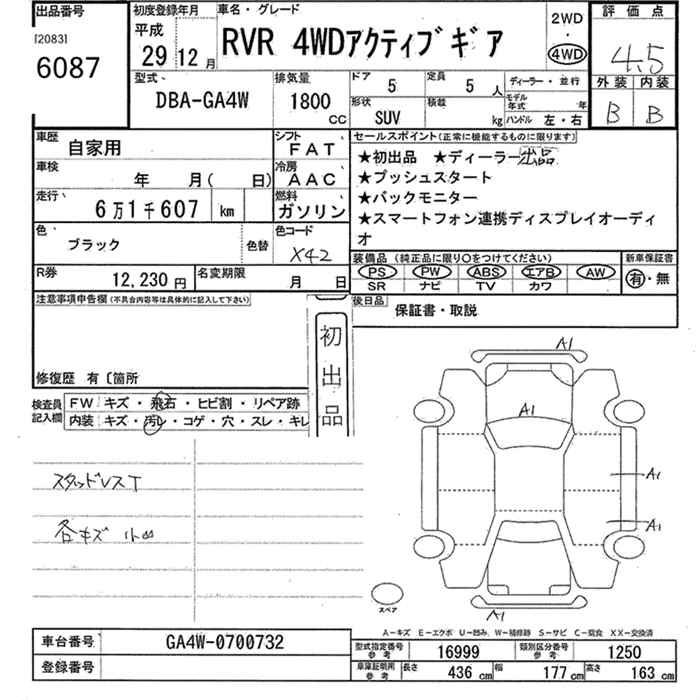 出品番号
[2083]
6087
初度登録年月
平成
29 12月
車名・グレード
RVR 4WDアクティブギア
2WD
・
4WD
評価点
4.5
外装 内装
B B
型式、
DBA-GA4W
排気量
1800
CC
ドア
5
定員
5 人
ディーラー・並行
形状
SUV
積載
kg
モデル年式 年
ハンドル 左・右
車歴
自家用
シフト
FAT
車検
年 月( 日)
冷房
AAC
走行、
6万1千607 km
燃料
ガソリン
色、
ブラック
色替
色コード
X42
R券
12,230円
名変期限
月 日
セールスポイント(正常に機能するものに限ります)
★初出品 ★ディーラー出品
★プッシュスタート
★バックモニター
★スマートフォン連携ディスプレイオーディ
オ
装備品(純正品に限り○をつけてください)
PS PW ABS エアB AW
SR ナビ TV カワ
新車保証書
有・無
後日品
保証書・取説
注意事項申告欄(不具合内容等は具体的に記入して下さい)
修復歴 有〔箇所
初出品
検査員記入欄
FW キズ・飛石・ヒビ割・リペア跡
内装 キズ・汚レ・コゲ・穴・スレ・キレ
スタッドレスT
各キズ小
A1
A1
A1
A1
A1
スペア
A-キズ E-エクボ U-凹み W-補修跡 S-サビ C-腐食 XX-交換済
車台番号
GA4W-0700732
登録番号
型式指定番号
参考
16999
類別区分番号
参考
1250
車庫証明用
参考
長さ 436 cm
幅 177 cm
高さ 163 cm